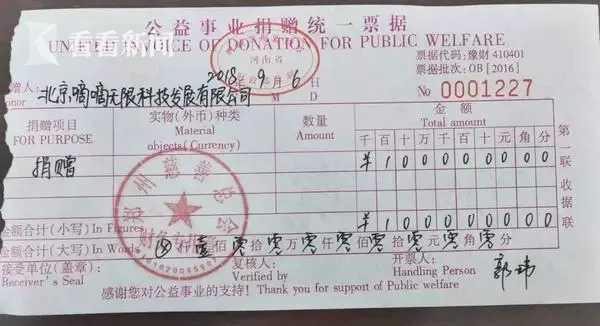 看看新闻
公益事业捐赠统一票据
UNIFIED INVOICE OF DONATION FOR PUBLIC WELFARE
河南省
票据代码:豫财 410401
票据批次:OB [2016]
捐赠人: 北京嘀嘀无限科技发展有限公司 2018.9.6 日
Donor M D No 0001227
捐赠项目 实物(外币)种类 数量 金额
FOR PURPOSE Material objects(Currency) Amount Total amount
千百十万千百十元角分
捐赠 ¥100000000
金额合计(小写)In Figures ¥100000000
金额合计(大写)In Words ⊗仟壹佰零拾零万零仟零佰零拾零元零角零分
接受单位(盖章): 复核人: 开票人: 郭玮
Receiver's Seal Verified by Handling Person
感谢您对公益事业的支持! Thank you for support of Public welfare
第一联 收据联
郑州慈善总会